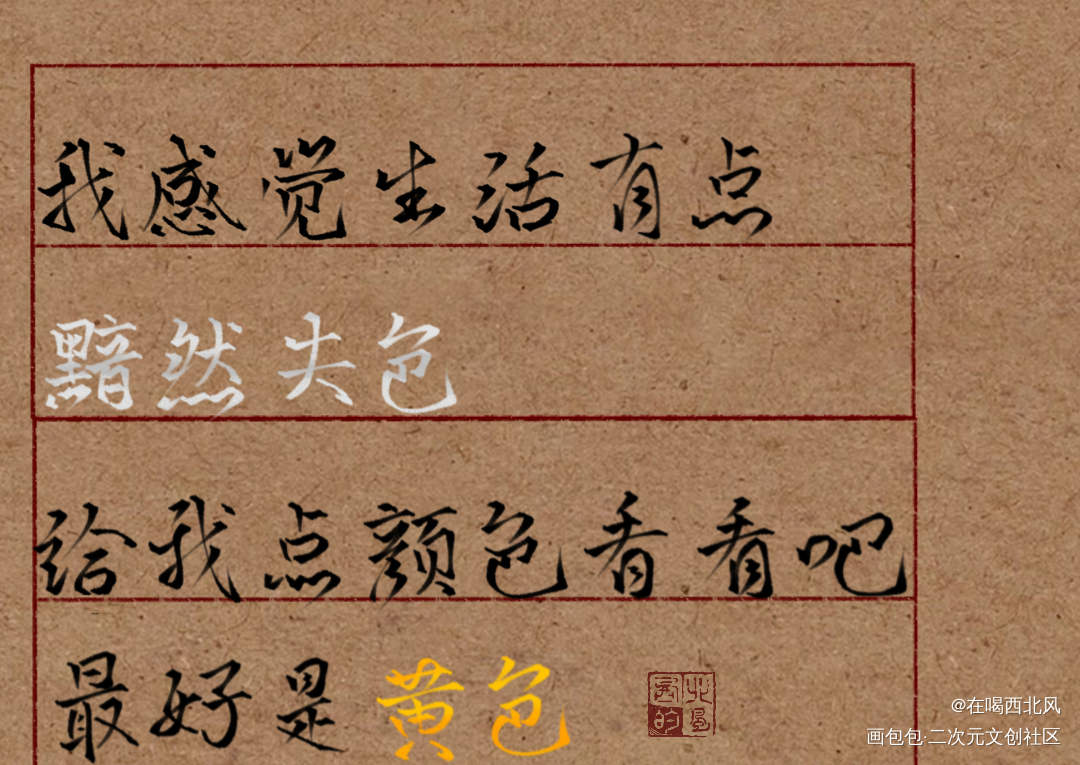 我感觉生活有点
黯然失色
给我点颜色看看吧
最好是黄色
@在喝西北风
画包包·二次元文创社区